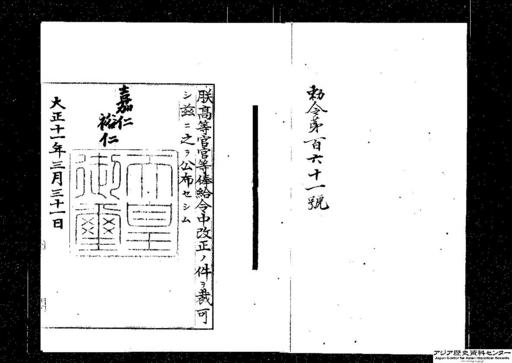 勅令第百六十一號
朕高等官官等俸給令中改正ノ件ヲ裁可
シ茲ニ之ヲ公布セシム
嘉仁
裕仁
天皇
御璽
大正十一年三月三十一日
アジア歴史資料センター
Japan Center for Asian Historical Records